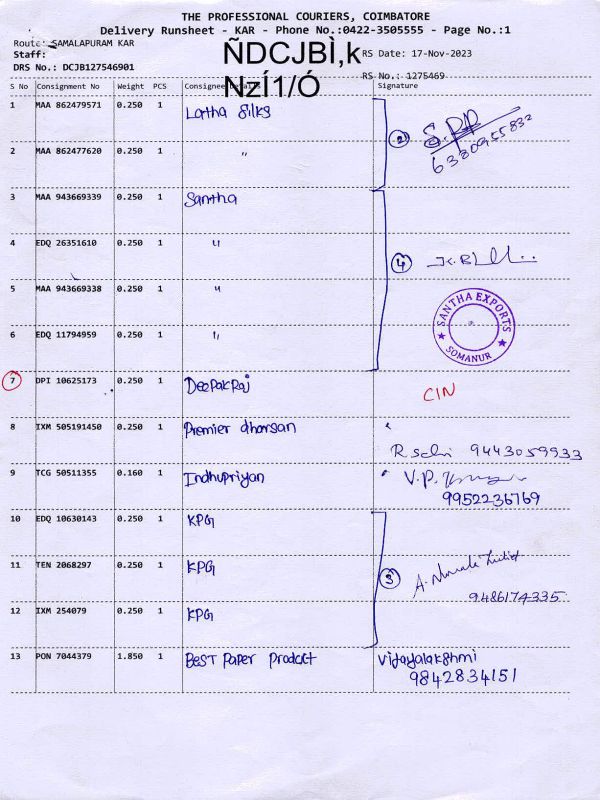 THE PROFESSIONAL COURIERS, COIMBATORE
Delivery Runsheet - KAR - Phone No.:0422-3505555 - Page No.:1
Route: SAMALAPURAM KAR
Staff:
ÑDCJBÌ,k RS Date: 17-Nov-2023
DRS No.: DCJB127546901
NzÍ1/Ó RS No.: 1275469
S No Consignment No Weight PCS Consignee Details Signature
1 MAA 862479571 0.250 1 Latha Silks
2 MAA 862477620 0.250 1 " 2 S.PR
6380955832
3 MAA 943669339 0.250 1 Santha
4 EDQ 26351610 0.250 1 " 4
5 MAA 943669338 0.250 1 "
SANTHA EXPORTS
SOMANUR
6 EDQ 11794959 0.250 1 "
7 DPI 10625173 0.250 1 DeePakRaj CIN
8 IXM 505191450 0.250 1 Premier dharsan
R. 9443059933
9 TCG 50511355 0.160 1 Indhupriyan V.P.
9952236769
10 EDQ 10630143 0.250 1 KPG
11 TEN 2068297 0.250 1 KPG 3 A.
9486174335
12 IXM 254079 0.250 1 KPG
13 PON 7044379 1.850 1 BeST PaPer Product Vijayalakshmi
9842834151